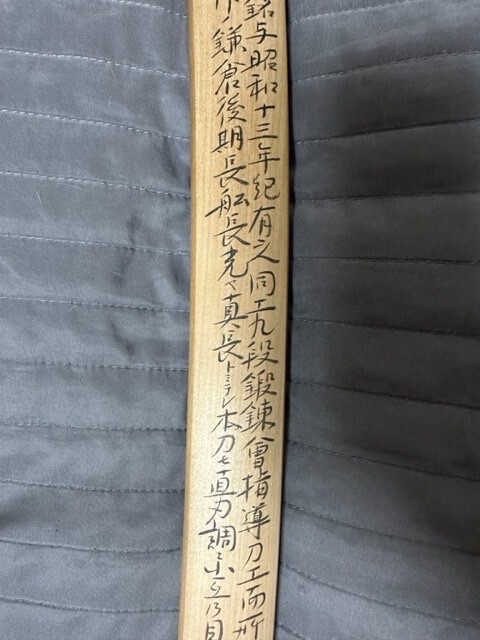 銘与昭和十三年紀有之同工九段鍛錬會指導刀工而所
鎌倉後期長船長光ヤ真長トミラレ本刀モ直刃調ニ小互乃目